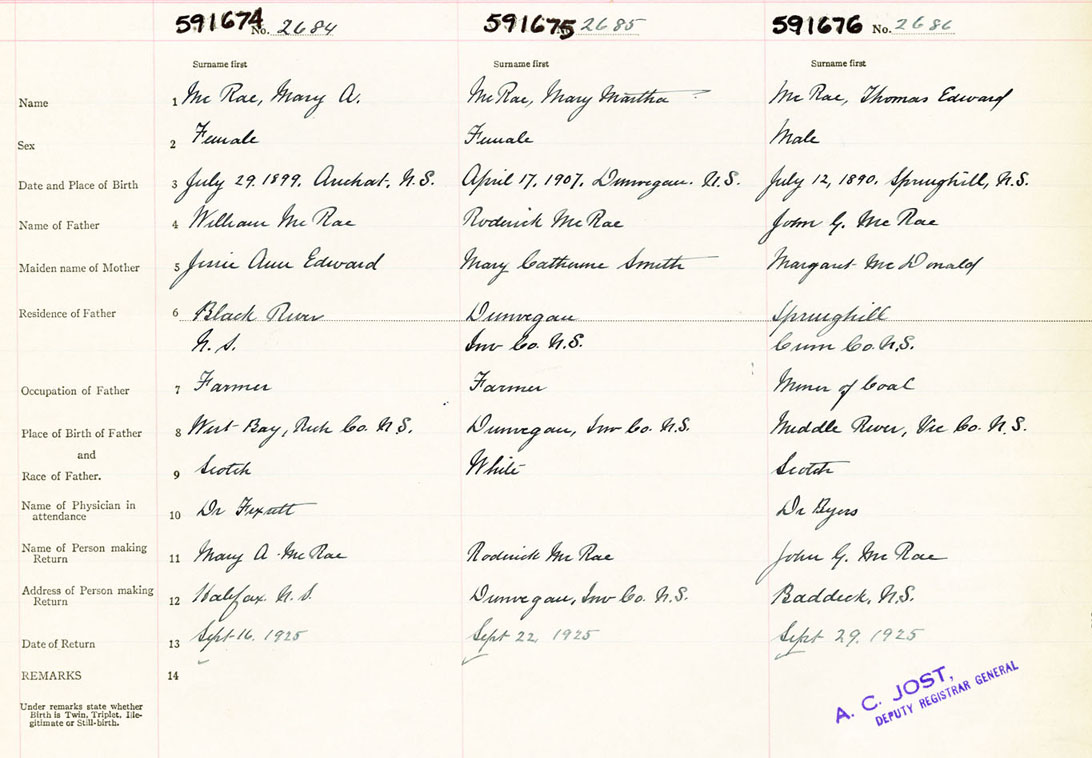 591674 No. 2684 591675 2685 591676 No. 2686
Surname first Surname first Surname first
Name 1 Mc Rae, Mary A. McRae, Mary Martha Mc Rae, Thomas Edward
Sex 2 Female Female Male
Date and Place of Birth 3 July 29. 1899. Arichat. N.S. April 17, 1907. Dunvegan. N.S. July 12, 1890. Springhill, N.S.
Name of Father 4 William Mc Rae Roderick McRae John G. Mc Rae
Maiden name of Mother 5 Jessie Ann Edward Mary Catherine Smith Margaret McDonald
Residence of Father 6 Black River Dunvegan Springhill
N. S. Inv Co. N.S. Cum Co. N.S.
Occupation of Father 7 Farmer Farmer Miner of Coal
Place of Birth of Father 8 West Bay, Rich Co. N.S. Dunvegan, Inv Co. N.S. Middle River, Vic Co. N.S.
and
Race of Father. 9 Scotch White Scotch
Name of Physician in
attendance 10 Dr Dr Byers
Name of Person making
Return 11 Mary A. McRae Roderick Mc Rae John G. Mc Rae
Address of Person making
Return 12 Halifax N. S. Dunvegan, Inv Co. N.S. Baddeck, N.S.
Date of Return 13 Sept 16. 1925 Sept 22, 1925 Sept 29. 1925
REMARKS 14
Under remarks state whether
Birth is Twin, Triplet, Ille-
gitimate or Still-birth.
A. C. JOST,
DEPUTY REGISTRAR GENERAL